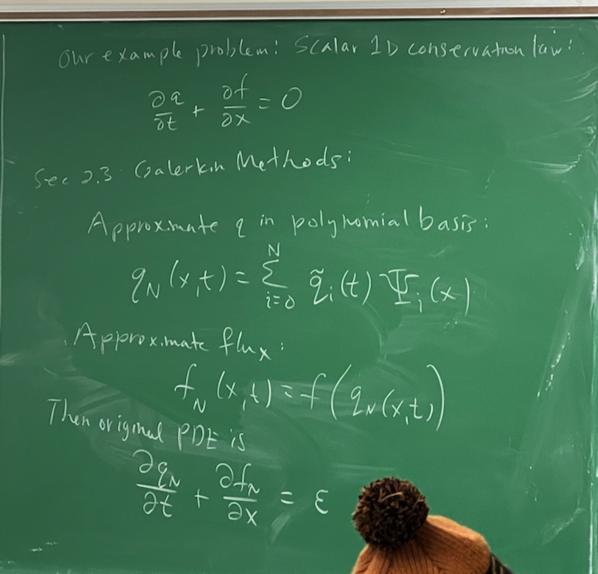 Our example problem: Scalar 1D conservation law:
∂q/∂t + ∂f/∂x = 0
Sec 2.3 Galerkin Methods:
Approximate q in polynomial basis:
q_N(x,t) = Σ_{i=0}^{N} q̃_i(t) Ψ_i(x)
Approximate flux:
f_N(x,t) = f(q_N(x,t))
Then original PDE is
∂q_N/∂t + ∂f_N/∂x = ε